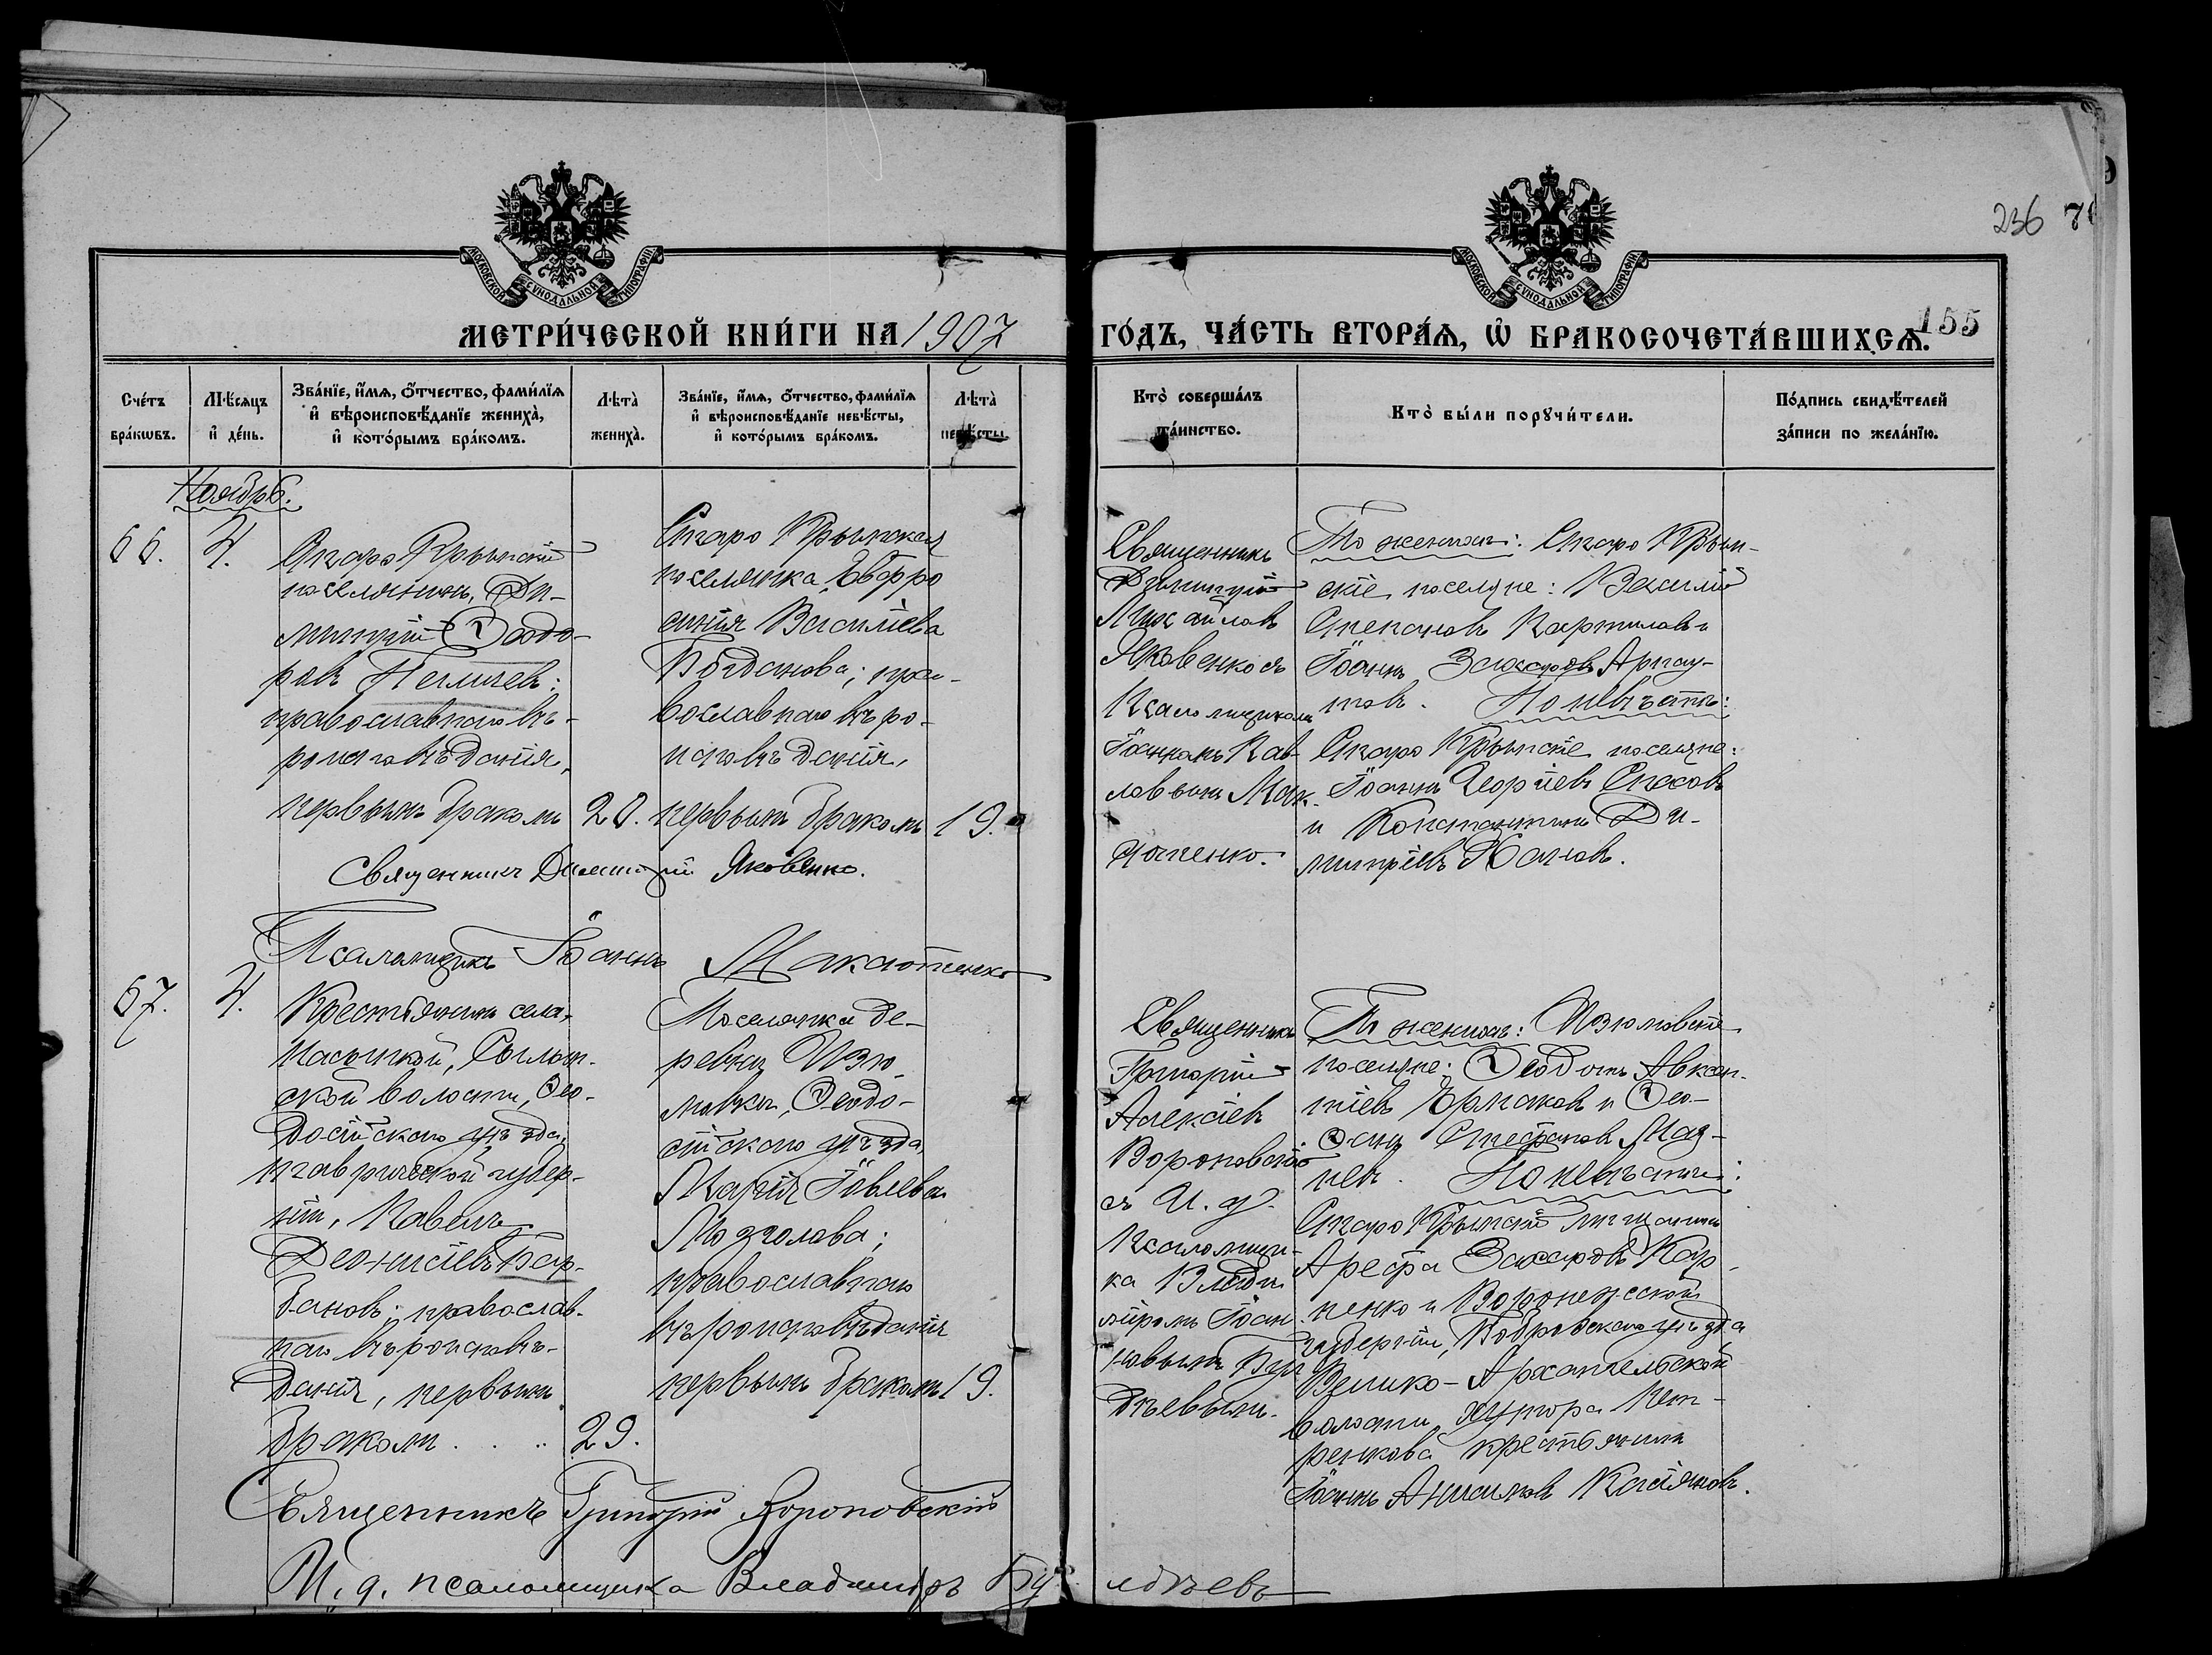 236
МОСКОВСКОЙ СѴНОДАЛЬНОЙ ТИПОГРАФІИ
МОСКОВСКОЙ СѴНОДАЛЬНОЙ ТИПОГРАФІИ
МЕТРИ́ЧЕСКОЙ КНИ́ГИ НА 1907 ГО́ДЪ, ЧА́СТЬ ВТОРА́Ѧ, Ѽ БРАКОСОЧЕТА́ВШИХСѦ.
155
Сче́тъ бра́кѡвъ.
Мѣ́сяцъ и҆ де́нь.
Зва́нїе, и҆́мѧ, ѻ҆́тчество, фами́лїѧ
и҆ вѣроисповѣ́данїе жениха̀,
и҆ кото́рымъ бра́комъ.
Лѣта̀ жениха̀.
Зва́нїе, и҆́мѧ, ѻ҆́тчество, фами́лїѧ
и҆ вѣроисповѣ́данїе невѣ́сты,
и҆ кото́рымъ бра́комъ.
Лѣта̀ невѣ́сты.
Кто̀ соверша́лъ та́инство.
Кто̀ бы́ли порꙋчи́тели.
По́дпись свидѣ́телей за́писи по жела́нїю.
Ноябрь.
66.
4.
Старо Крымскій
поселянинъ, Ди-
митрій Ѳеодо-
ровъ Пегличев:
православнаго вѣ-
роисповѣданія,
первымъ бракомъ
20.
Старо Крымская
поселянка Евфро
синія Василіева
Богданова; пра-
вославнаго вѣро-
исповѣданія,
первымъ бракомъ
19.
Священникъ
Димитрій
Михайловъ
Яковенко съ
Псаломщикомъ
Іоанномъ Пав-
ловымъ Мак-
отенко.
По женихѣ: Старо Крым-
скіе поселяне: Василій
Степановъ Карпиловъ и
Іоаннъ Захаровъ Арнау-
товъ. По невѣстѣ:
Старо Крымскіе поселяне:
Іоаннъ Георгіевъ
и Константинъ Ди-
митріевъ
Священникъ Димитрій Яковенко.
Псаломщикъ Іоаннъ Макотенко
67.
4.
Крестьянинъ села
Насыпкой,
ской волости, Ѳео-
досійскаго уѣзда,
таврической губер-
ніи, Павелъ
Деонисіевъ Бар-
бановъ; православ-
наго вѣроисповѣ-
данія, первымъ
бракомъ
29.
Поселянка де-
ревни Изю-
мовки, Ѳеодо-
сійскаго уѣзда,
Марія Іовлева
Мозголова;
православнаго
вѣроисповѣданія
первымъ бракомъ
19.
Священникъ
Григорій
Алексіевъ
Вороновскій
съ И. д.
псаломщи-
ка Влади-
міромъ Іоан-
новымъ Бул-
дѣевымъ.
По женихѣ: Изюмовскіе
поселяне: Ѳеодотъ Авксен-
тіевъ Ермаковъ и Ѳео-
Стефановъ
По невѣстѣ:
Старо Крымскій мѣщанинъ
Арефа Захаровъ Кар-
пенко и Воронежской
губерніи, Бобровскаго уѣзда
Велико-Архангельской
волости, хутора Пет-
ренкова крестьянинъ
Іоаннъ Анисимовъ Касіяновъ.
Священникъ Григорій Вороновскій
И. д. псаломщика Владиміръ Булдѣевъ